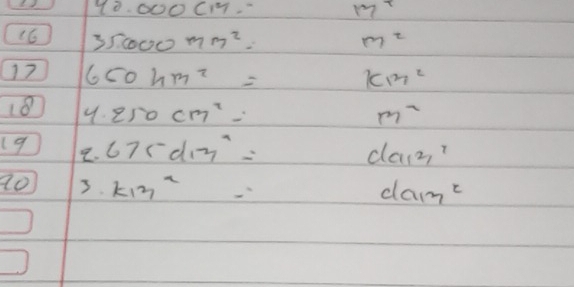 15 42.000 cm² = m²
16 35.000 mm² = m²
17 650 hm² = km²
18 4.250 cm² = m²
19 2.675 dm² = dam²
20 3. km² = dam²